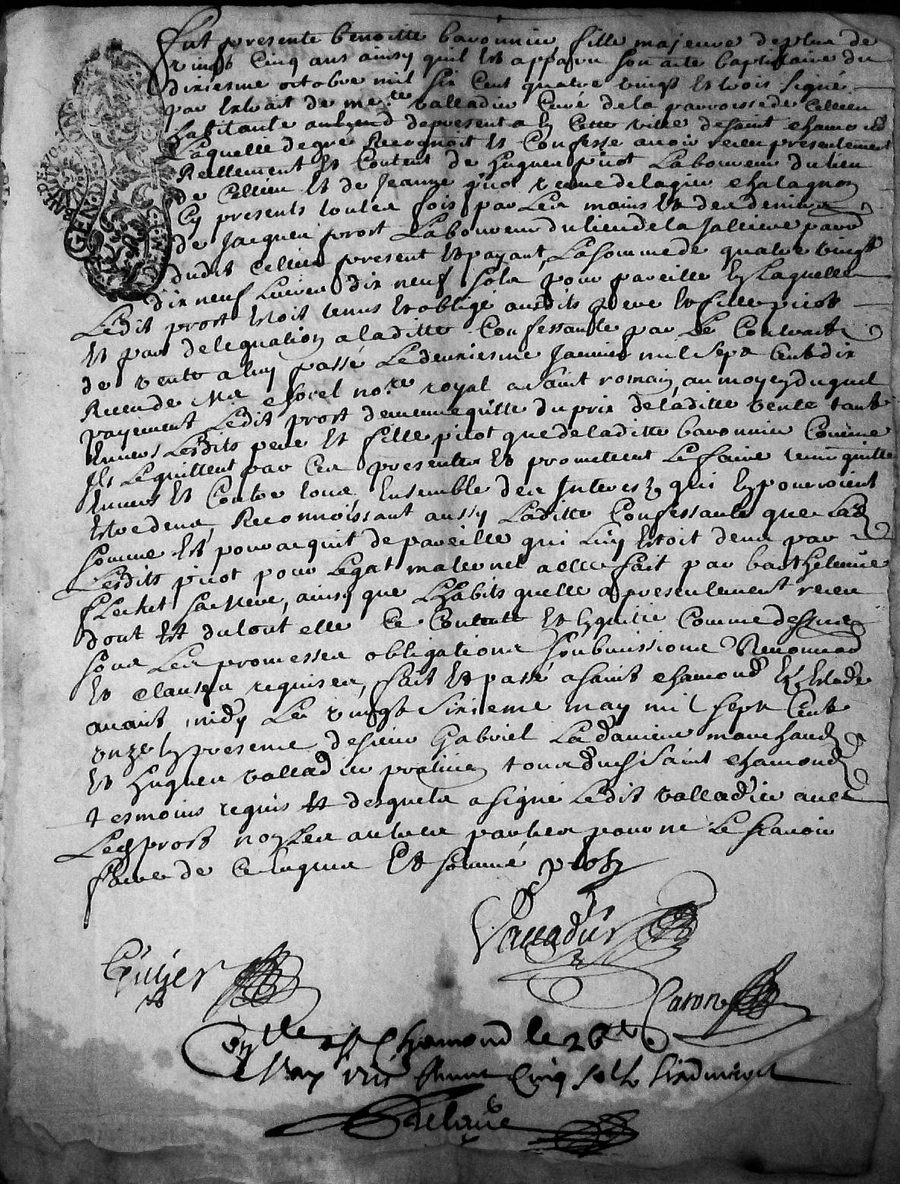 fut presente benoitte baronnier fille majeure de plus de
vingt cinq ans ainsy quil est apparu son acte baptistaire du
dixiesme octobre mil six cent quatre vingt et trois signé
par extrait de me valladier curé de la parroisse de Cellieu
habitante de present a en cette ville de saint chamond
Laquelle de gré Reconnoit et Confesse avoir receu presentement
Reellement et Content de hugues picot Laboureur du lieu
de Cellieu et de Jeanne picot vefve de lagier chatagnon
Cy presents toutes fois par les mains et des deniers
de Jacques prost Laboureur du lieu de la Jalliere par
dudit Cellieu present et payant, La somme de quatre vingt
dix neuf livres dix neuf sols pour pareille en laquelle
Ledit prost estoit tenus et obligé audits pere et fille picot
Et par delegation a laditte Confessante par Le Contract
de vente a luy passé Le deuxiesme Janvier mil sept cent dix
Receu de me chorel nore royal a Saint romain, au moyen duquel
payement Ledit prost demeure quitte du prix de laditte vente tant
Envers Lesdits pere et fille picot que de laditte baronnier Comme
ils Le quittent par Ces presentes et promettent Le faire tenir quitte
Envers et Contre tous Ensemble des Interests qui En pourroient
Estre deus, Reconnoissant aussy Laditte Confessante que La
somme Est pour acquit de pareille qui Luy Estoit deue par
Lesdits picot pour Legat maternel a elle fait par barthelemie
flechet sa mere, ainsy que L'habits quelle a presentement receu
dont Et du tout elle Ce Contente Et En quitte Comme dessus
sous Les promesses obligations soubmissions Renonciaon
Et Clauses requises, fait Et passé a saint chamond Estude
avant midy Le vingt sixieme may mil sept Cent
onze En presence de sieur Gabriel La daviere marchand
Et hugues valladier praticien tous dudit Saint chamond
tesmoins requis Et desquels a signé Ledit valladier avec
Ledit prost non Les autres parties pour ne Le scavoir
faire de Ce enquis Et sommé prost
Valladier
Caron
Conlle a St Chamond le 26e
May 1711 Receu Cinq sols